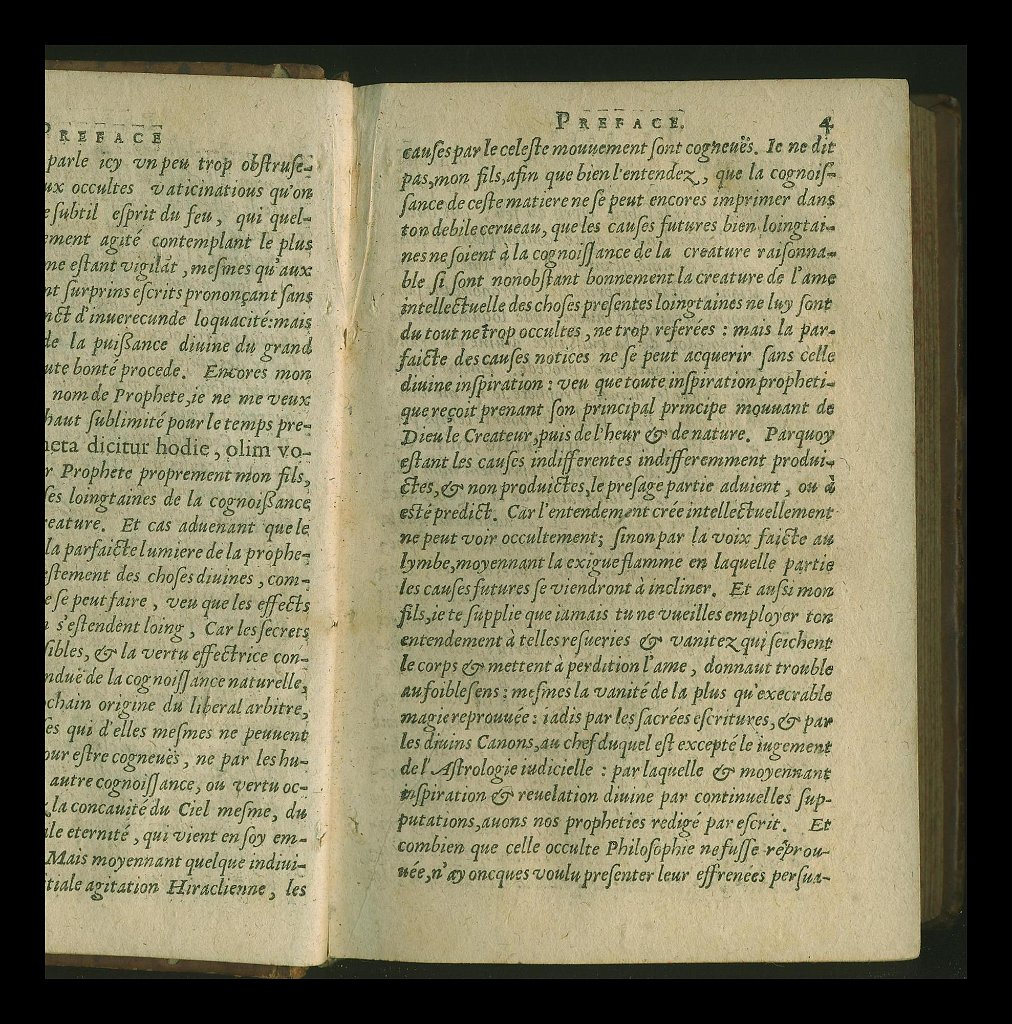 PREFACE
parle icy vn peu trop obſtruſe-
ux occultes vaticinatious qu'on
e ſubtil eſprit du feu, qui quel-
ement agité contemplant le plus
me eſtant vigilāt, meſmes qu'aux
nt ſurprins eſcrits prononçant ſans
nct d'inuerecunde loquacité: mais
de la puiſſance diuine du grand
ute bonté procede. Encores mon
nom de Prophete, ie ne me veux
haut ſublimité pour le temps pre-
heta dicitur hodie, olim vo-
r Prophete proprement mon fils,
ſes loingtaines de la cognoiſſance
reature. Et cas aduenant que le
la parfaicte lumiere de la prophe-
eſtement des choſes diuines, com-
e ſe peut faire, veu que les effects
n s'eſtendent loing, Car les ſecrets
ſibles, & la vertu effectrice con-
nduë de la cognoiſſance naturelle,
chain origine du liberal arbitre,
ſes qui d'elles meſmes ne peuuent
our eſtre cogneuës, ne par les hu-
autre cognoiſſance, ou vertu oc-
z la concauité du Ciel meſme, du
ale eternité, qui vient en ſoy em-
Mais moyennant quelque indiui-
tiale agitation Hiraclienne, les
PREFACE. 4
cauſes par le celeſte mouuement ſont cogneuës. Ie ne dit
pas, mon fils, afin que bien l'entendez, que la cognoiſ-
ſance de ceſte matiere ne ſe peut encores imprimer dans
ton debile cerueau, que les cauſes futures bien loingtai-
nes ne ſoient à la cognoiſſance de la creature raiſonna-
ble ſi ſont nonobſtant bonnement la creature de l'ame
intellectuelle des choſes preſentes loingtaines ne luy ſont
du tout ne trop occultes, ne trop referées : mais la par-
faicte des cauſes notices ne ſe peut acquerir ſans celle
diuine inſpiration : veu que toute inſpiration propheti-
que reçoit prenant ſon principal principe mouuant de
Dieu le Createur, puis de l'heur & de nature. Parquoy
eſtant les cauſes indifferentes indifferemment produi-
ctes, & non produictes, le preſage partie aduient, ou à
eſté predict. Car l'entendement crée intellectuellement
ne peut voir occultement; ſinon par la voix faicte au
lymbe, moyennant la exigue flamme en laquelle partie
les cauſes futures ſe viendront à incliner. Et auſsi mon
fils, ie te ſupplie que iamais tu ne vueilles employer ton
entendement à telles reſueries & vanitez qui ſeichent
le corps & mettent à perdition l'ame, donnaut trouble
au foible ſens : meſmes la vanité de la plus qu'execrable
magie reprouuée : iadis par les ſacrées eſcritures, & par
les diuins Canons, au chef duquel eſt excepté le iugement
de l'Aſtrologie iudicielle : par laquelle & moyennant
inſpiration & reuelation diuine par continuelles ſup-
putations, auons nos propheties redigé par eſcrit. Et
combien que celle occulte Philoſophie ne fuſſe reprou-
uée, n'ay oncques voulu preſenter leur effrenées perſua-